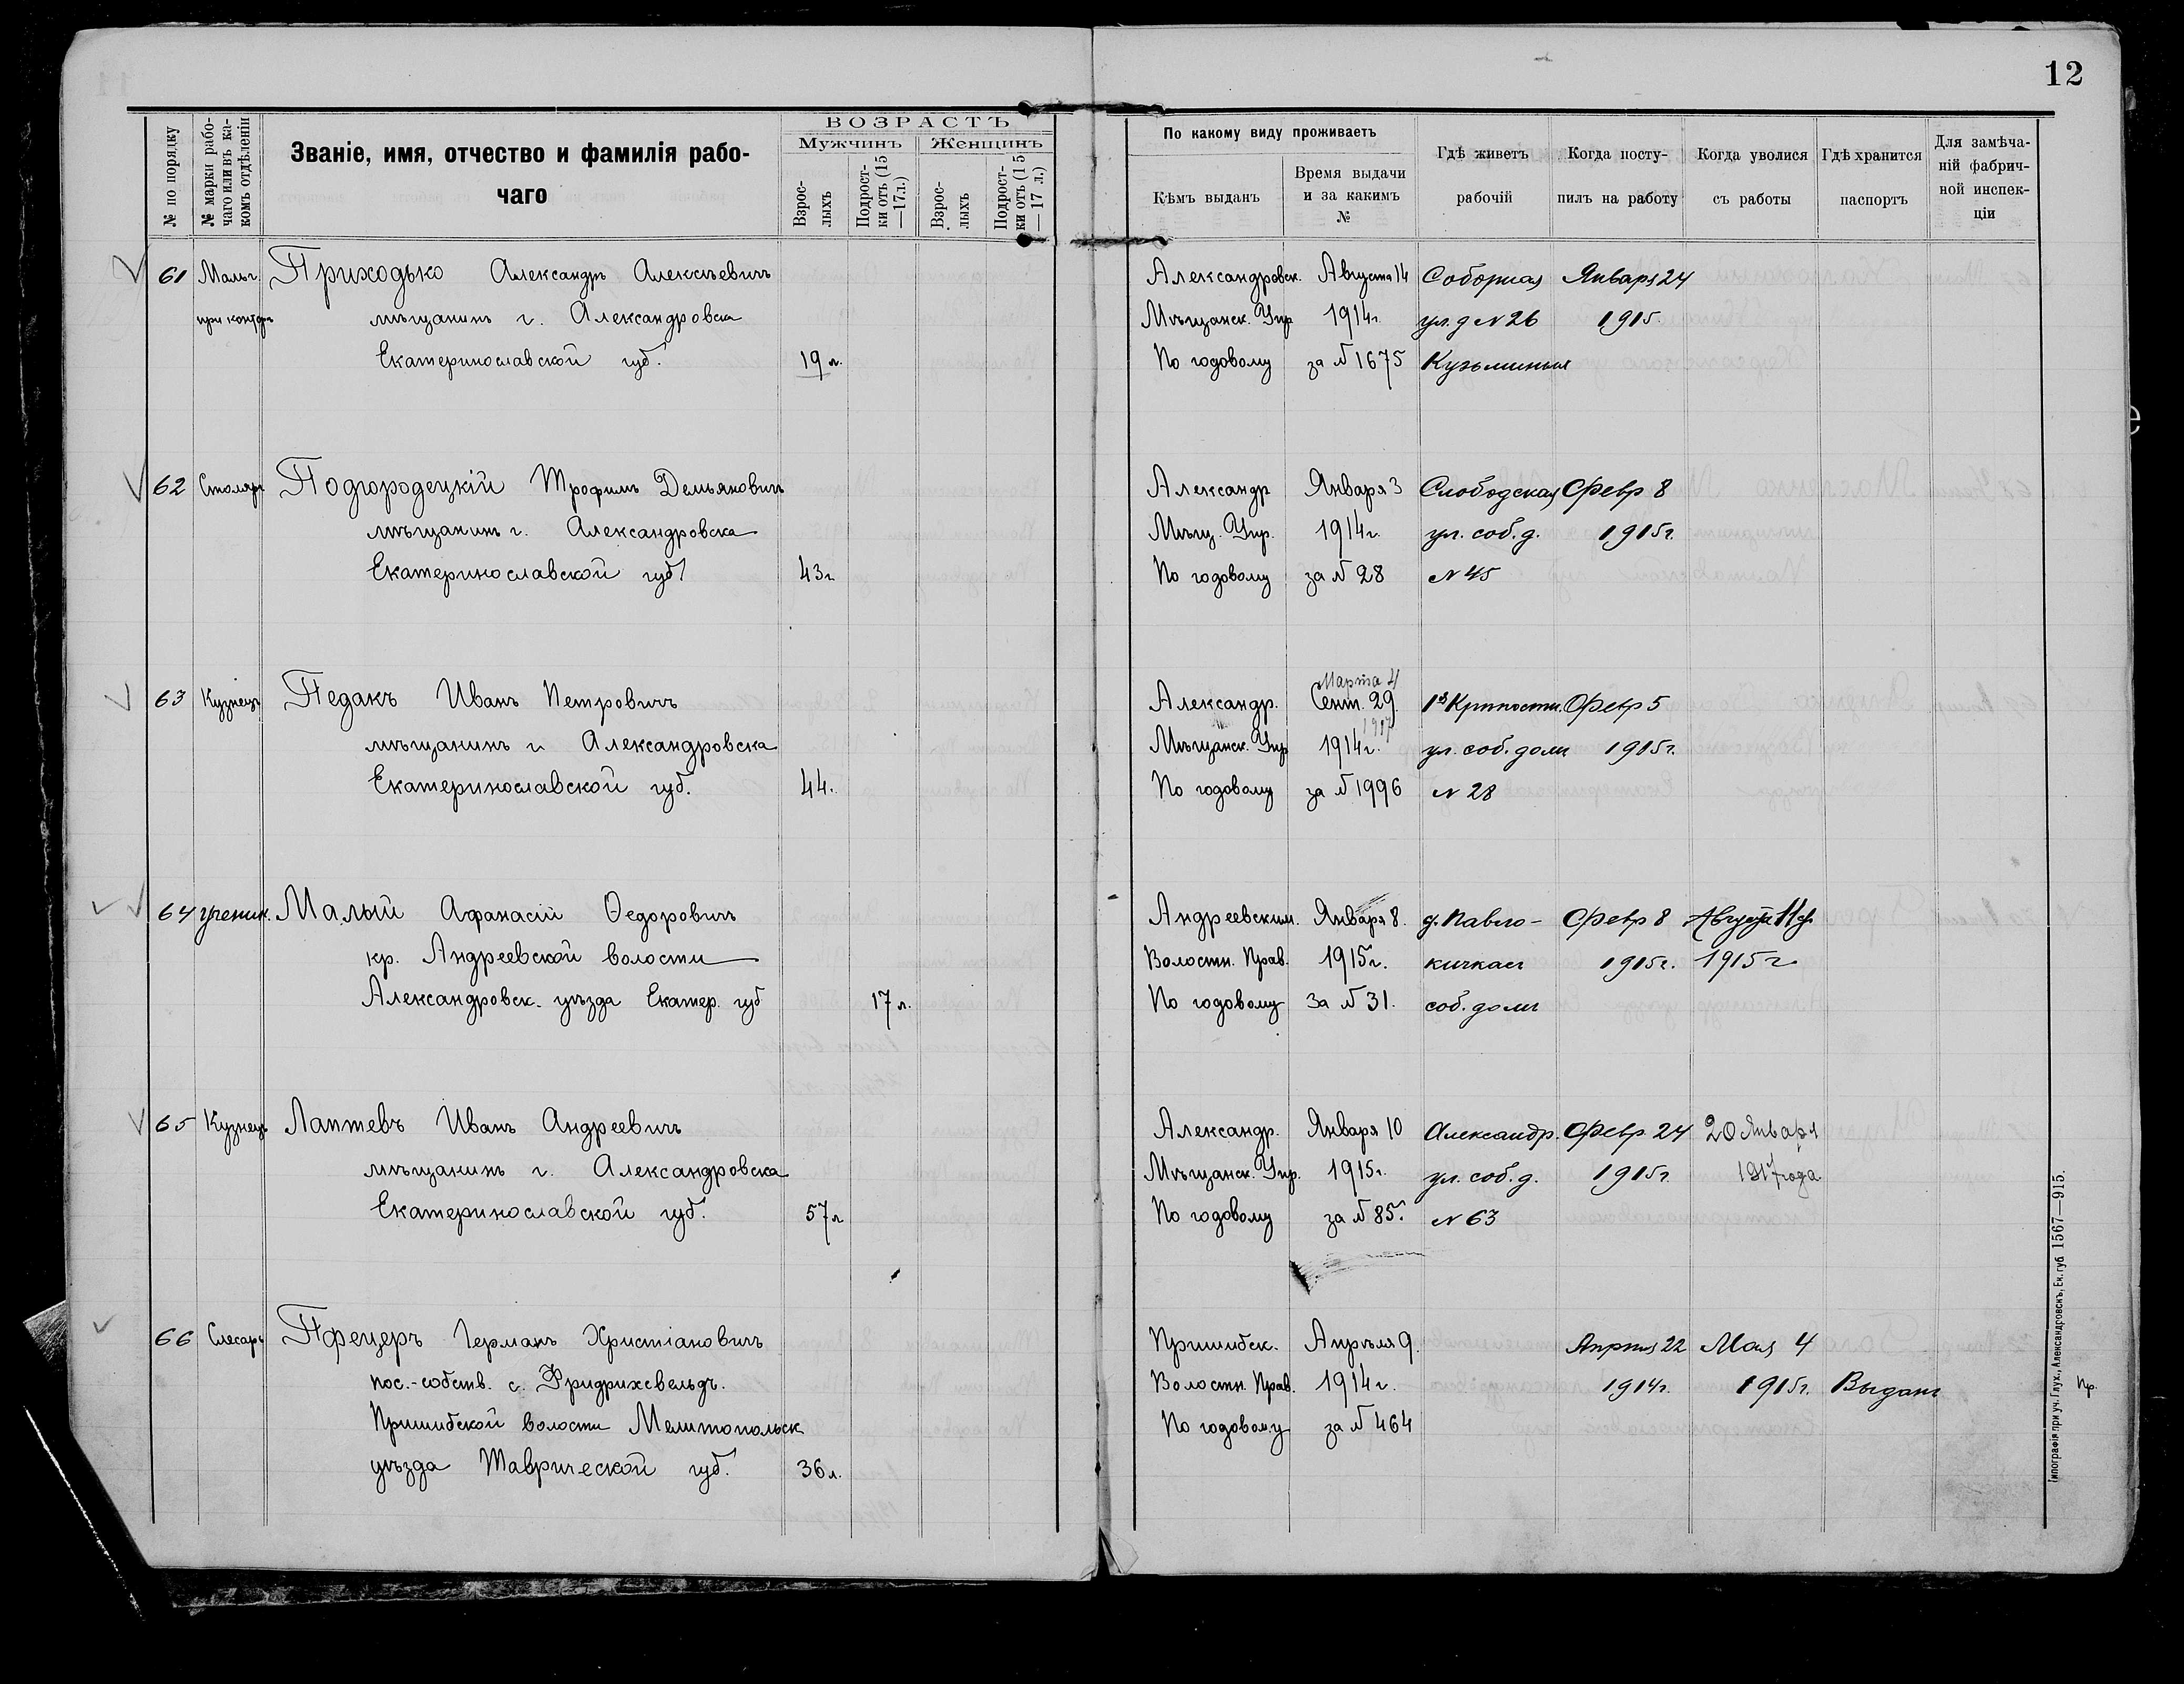 12
№ по порядку
№ марки рабочаго или въ какомъ отдѣленіи
Званіе, имя, отчество и фамилія рабо-
чаго
ВОЗРАСТЪ
Мужчинъ Женщинъ
Взрос-лыхъ Подрост-ки отъ (15—17 л.) Взрос-лыхъ Подрост-ки отъ (15—17 л.)
По какому виду проживаетъ
Кѣмъ выданъ
Время выдачи и за какимъ №
Гдѣ живетъ рабочій
Когда посту-пилъ на работу
Когда уволися съ работы
Гдѣ хранится паспортъ
Для замѣча-ній фабрич-ной инспек-ціи
61 Мальч. Приходько Александръ Алексѣевичъ Александровск. Августа 14 Соборная Января 24
при конторѣ мѣщанинъ г. Александровска Мѣщанск. Упр 1914г. ул. д N 26 1915.
Екатеринославской губ. 19 л. По годовому за N 1675
62 Столяръ Подгородецкій Трофимъ Демьяновичъ Александр Января 3 Слободская Февр 8
мѣщанинъ г. Александровска Мѣщ. Упр. 1914г. ул. соб. д. 1915г.
Екатеринославской губ. 43г. По годовому за N 28 N 45
Марта 4
63 Кузнецъ Педакъ Иванъ Петровичъ Александр. Сент. 29. 1я Крѣпостн. Февр 5
мѣщанинъ г. Александровска Мѣщанск. Упр 1914г. ул. соб. домъ 1915г.
Екатеринославской губ. 44. По годовому за N 1996 N 28
64 ученик. Малый Афанасій Ѳедоровичъ Андреевским. Января 8. д. Павло- Февр 8 Августа
кр. Андреевской волости Волостн. Прав. 1915г. кичкас 1915г. 1915г
Александровск. уѣзда Екатер. губ 17 л. По годовому За N 31. соб. домъ
65 Кузнецъ Лаптевъ Иванъ Андреевичъ Александр. Января 10 Александр. Февр 24 20 Января
мѣщанинъ г. Александровска Мѣщанск. Упр. 1915г. ул. соб. д. 1915г. 1917 года
Екатеринославской губ. 57 л По годовому за N 85. N 63
66 Слесарь Пфецеръ Германъ Христіановичъ Пришибск. Апрѣля 9. Апрѣля 22 Мая 4
пос.-собств. с. Фридрихсвельдъ. Волостн. Прав. 1914г. 1914г. 1915г. Выданъ Пр.
Пришибской волости Мелитопольск По годовому за N 464
уѣзда Таврической губ. 36 л.
Типографія при уч. Глух., Александровскъ, Ек. губ 1567—915.